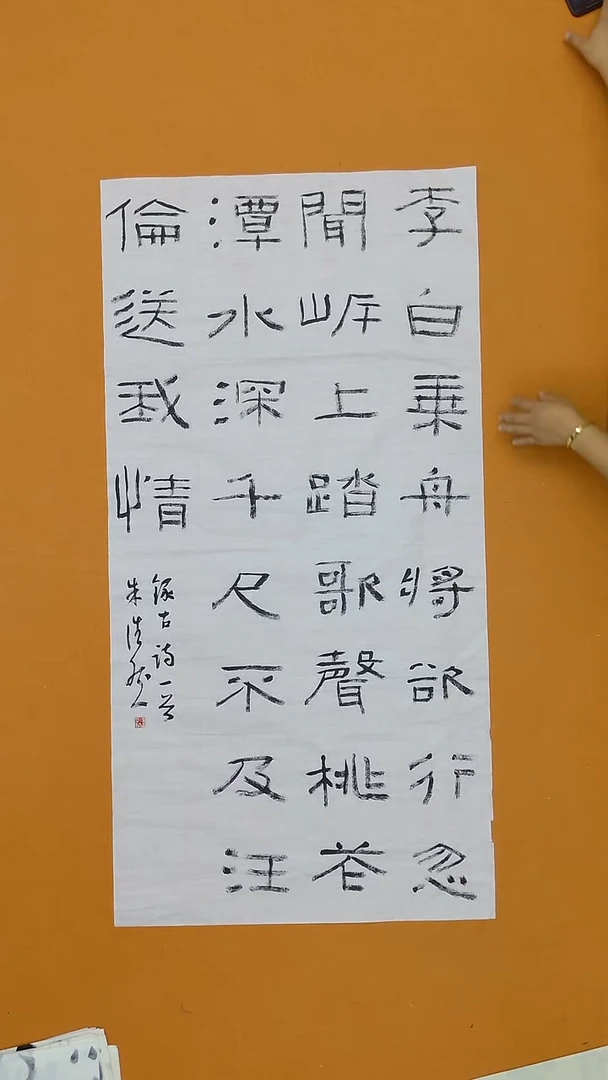 李白乗舟將欲行忽
聞岸上踏歌聲桃花
潭水深千尺不及汪
倫送我情
録古詩一首
朱